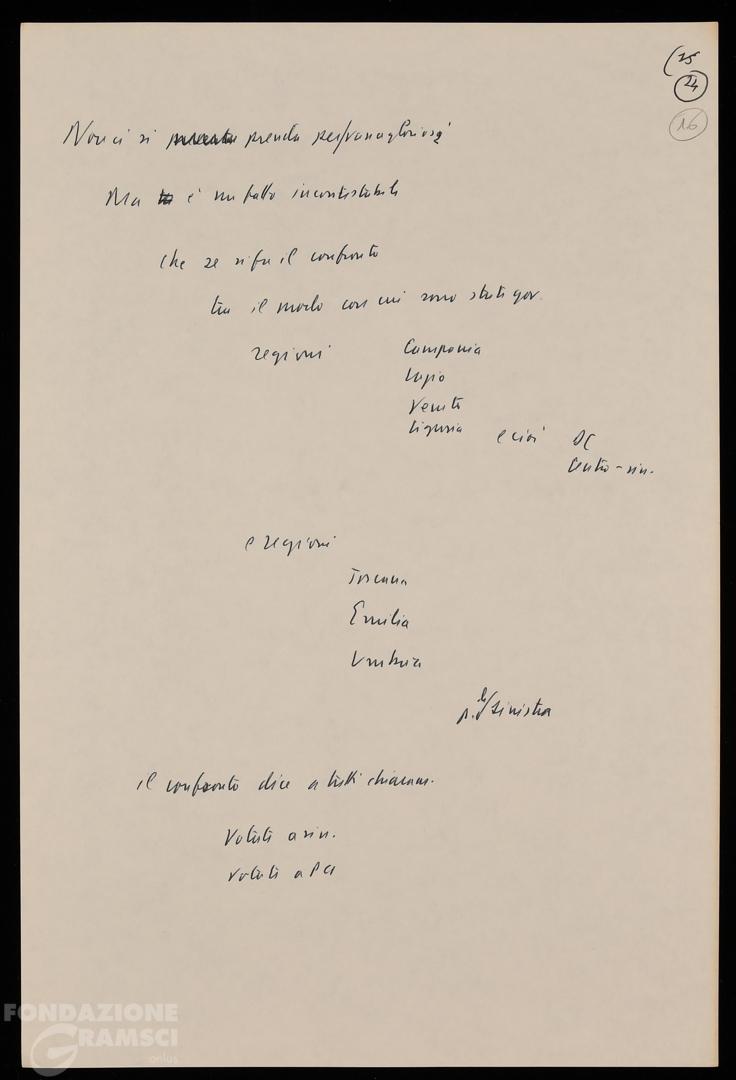 (25
24
16
Non ci si prenda per vanagloriosi
Ma è un fatto incontestabile
che se si fa il confronto
tra il modo con cui sono state gov.
regioni Campania
Lazio
Veneto
Liguria e cioè DC
Centro-sin.
e regioni
Toscana
Emilia
Umbria
di Sinistra
il confronto dice a tutti chiaram.
Votate a sin.
votate a PCI
FONDAZIONE
GRAMSCI
onlus